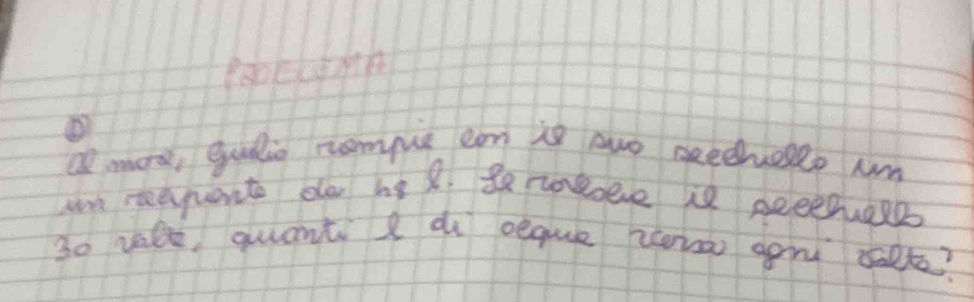 PROBLEMA
①
Al mare, Giulio riempie con il suo secchiello un
un recipiente da 45 l. Se rovescia il secchiello
30 volte, quanti l di acqua versa ogni volta?